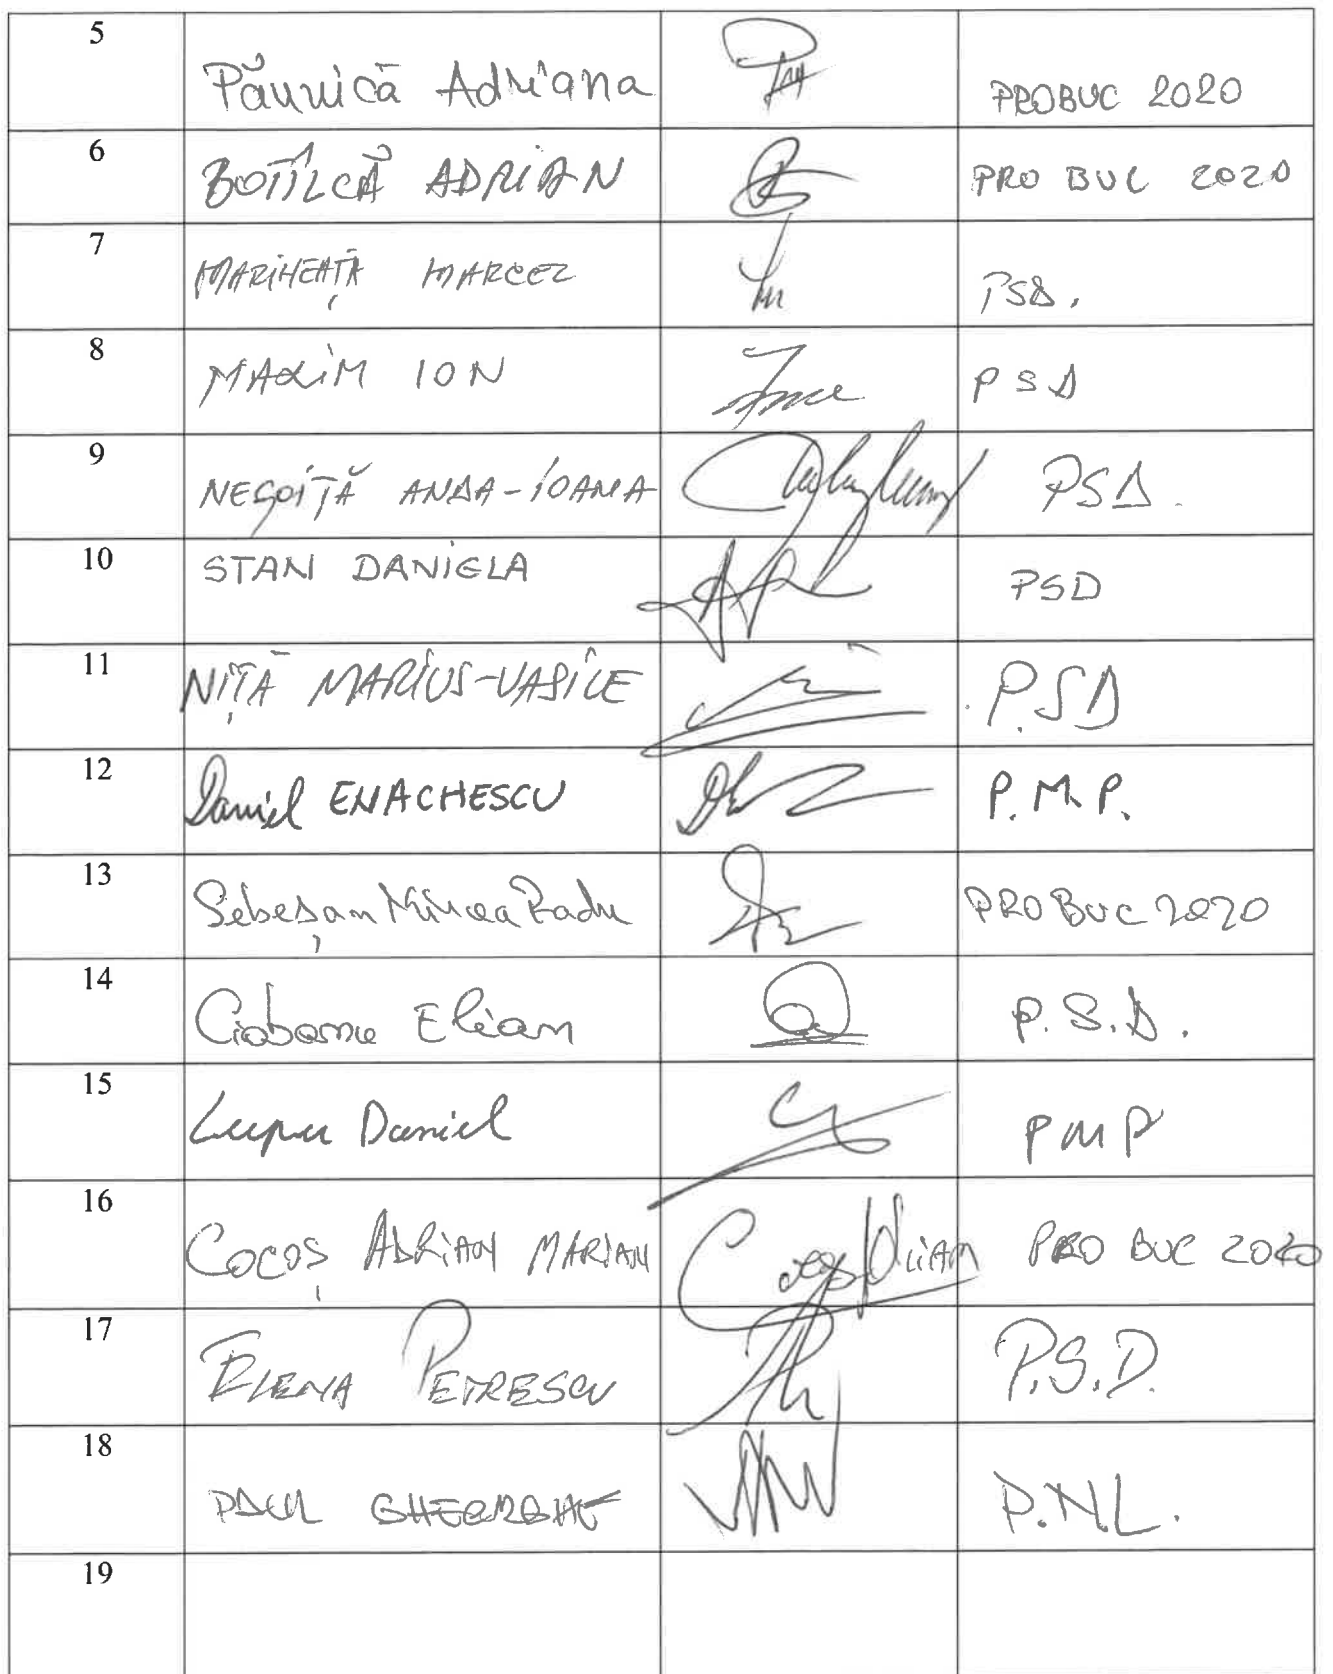 5
Păunică Adriana PROBUC 2020
6
BOTÎLCĂ ADRIAN PRO BUC 2020
7
MARIHEAȚĂ MARCEL PSD.
8
MAXIM ION PSD
9
NEGOIȚĂ ANDA-IOANA PSD.
10
STAN DANIELA PSD
11
NIȚĂ MARIUS-VASILE P.SD
12
Daniel ENACHESCU P.M.P.
13
Sebeșan Mircea Radu PRO BUC 2020
14
Ciobanu Elian P.S.D.
15
Lupu Daniel PMP
16
COCOȘ ADRIAN MARIAN PRO BUC 2020
17
ELENA PETRESCU P.S.D.
18
PAUL GHEORGHE P.NL.
19